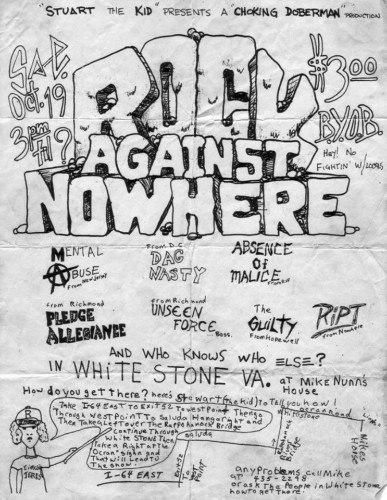 "STUART THE KID" PRESENTS A "CHOKING DOBERMAN" PRODUCTION
SAT.
OCT. 19
3pm Til ?
$3.00
B.Y.O.B.
HEY! NO
FIGHTIN' W/LOCALS
ROCK
AGAINST
NOWHERE
MENTAL
ABUSE
from New Jersey
from D.C.
DAG
NASTY
ABSENCE
OF
MALICE
from Richmond
PLEDGE
ALLEGIANCE
from Richmond
UNSEEN
FORCE
...Boss.
The
GUILTY
from Hopewell
RIPT
from Nowhere
AND WHO KNOWS WHO ELSE?
IN WHITE STONE VA. at MIKE NUNN'S
HOUSE
How do you get there? here's Stewart (the kid) To Tell you how!
Take I-64 EAST To Exit 52 To West Point. Then go
Through West Point To Saluda Hang a right and
Then Take a Left over The Rappahannock Bridge
Continue Through
White Stone Then
Take a Right at the
"Ocean" sign and
That will Lead To
The show.
I-64 EAST
Saluda
West Point
Whitestone
MIKE'S
HOUSE
any problems, call Mike
AT 435-2298
or ask The People in White Stone
how To get There.